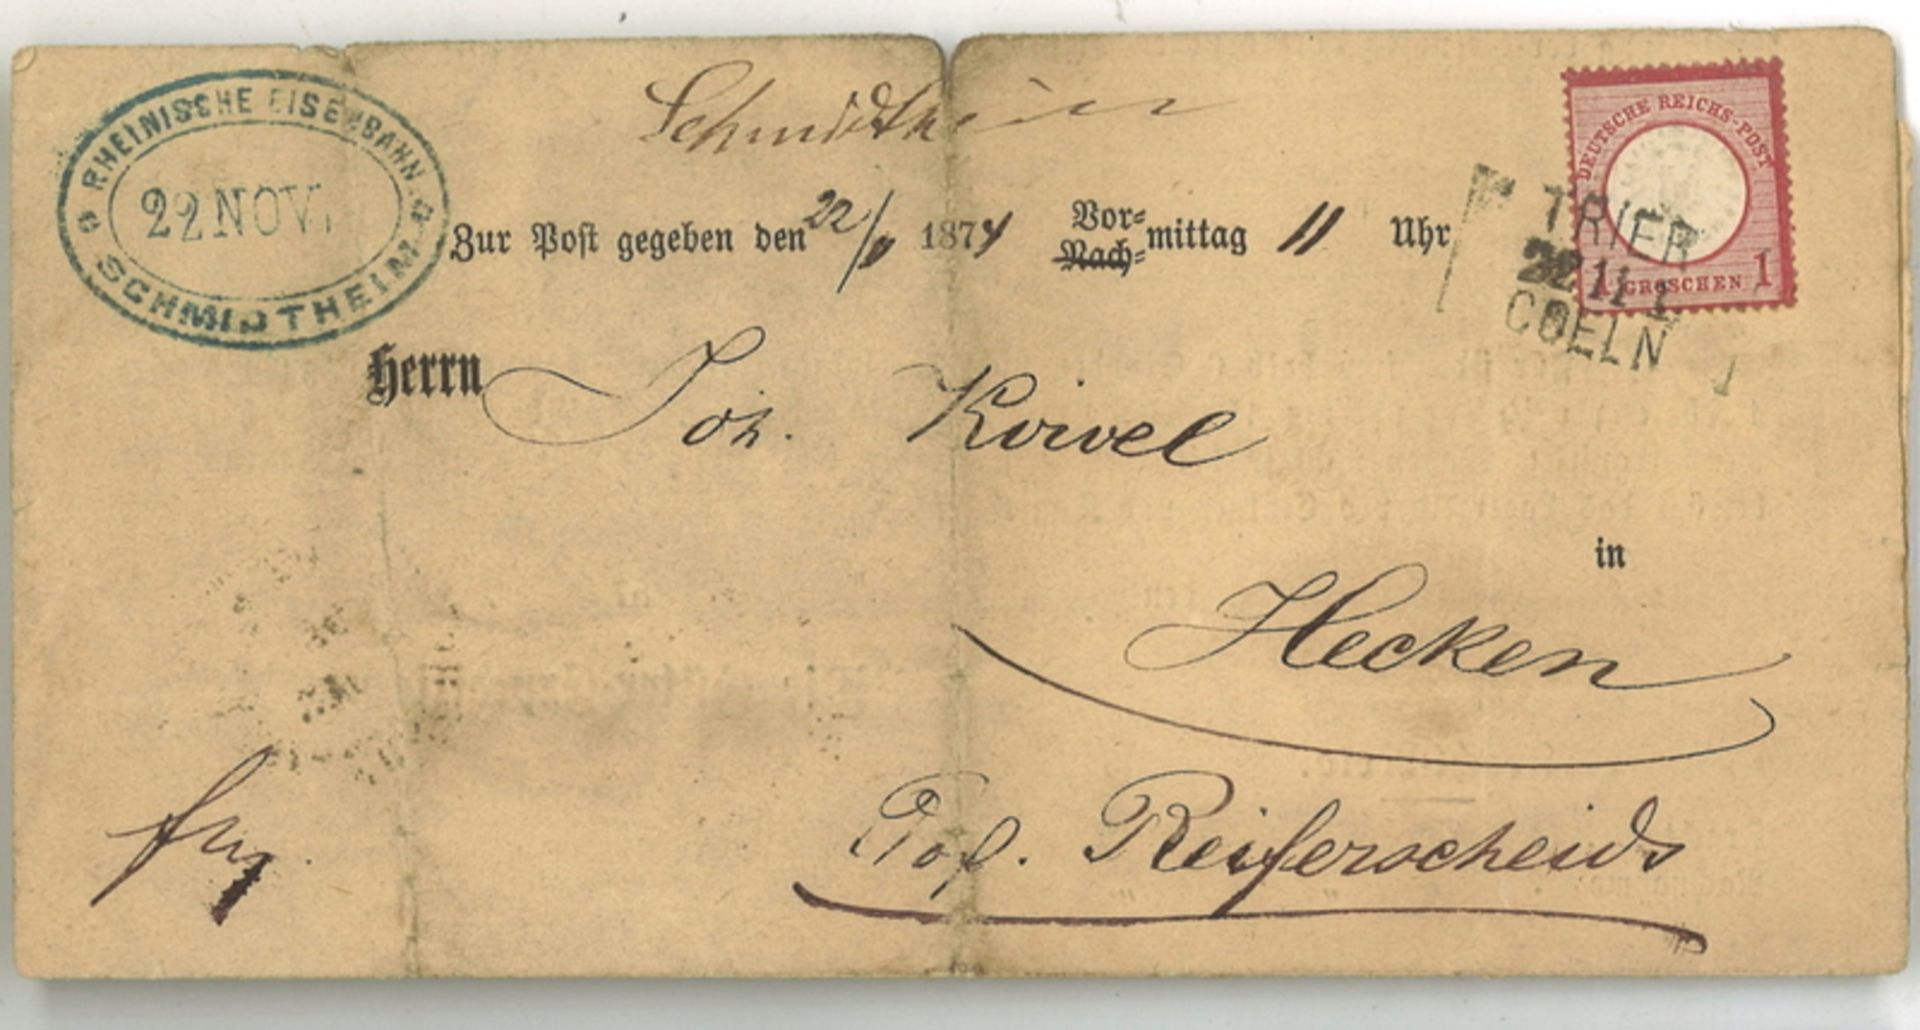 Schmidtheim
RHEINISCHE EISENBAHN
22 NOV.
SCHMIDTHEIM
DEUTSCHE REICHS-POST
1 GROSCHEN 1
TRIER
22 11 I
COELN
Zur Post gegeben den 22/11 1874 Vor= Nach= mittag 11 Uhr
Herrn Joh. Kowel
in
Hecken
Post. Reiferscheid
frg.